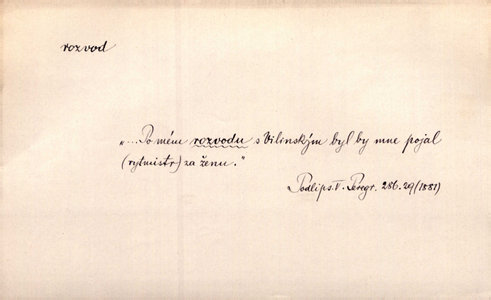 rozvod
„...Po mém rozvodu s Vilinským byl by mne pojal
(rytmistr) za ženu."
Podlips. V. Peregr. 286.29 (1881)